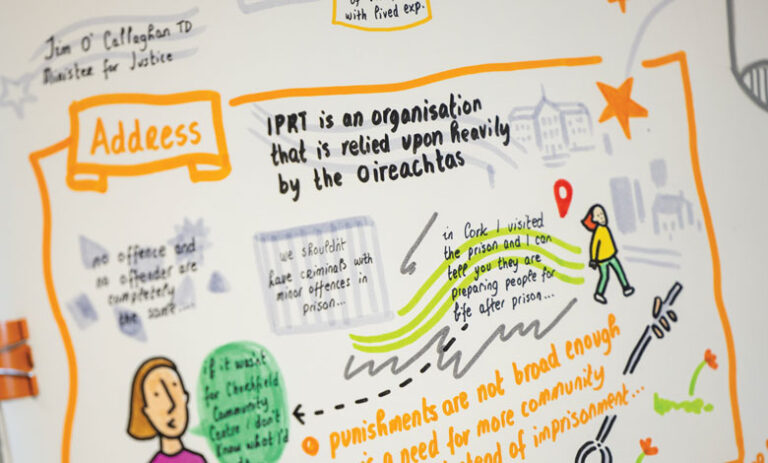 with lived exp.
Jim O' Callaghan TD
Minister for Justice
Address
IPRT is an organisation
that is relied upon heavily
by the Oireachtas
no offence and
no offender are
completely
the same....
we shouldn't
have criminals with
minor offences in
prison...
in Cork I visited
the prison and I can
tell you they are
preparing people for
life after prison...
if it wasn't
for Churchfield
Community
Centre I don't
know what I'd
punishments are not broad enough
is a need for more community
instead of imprisonment...